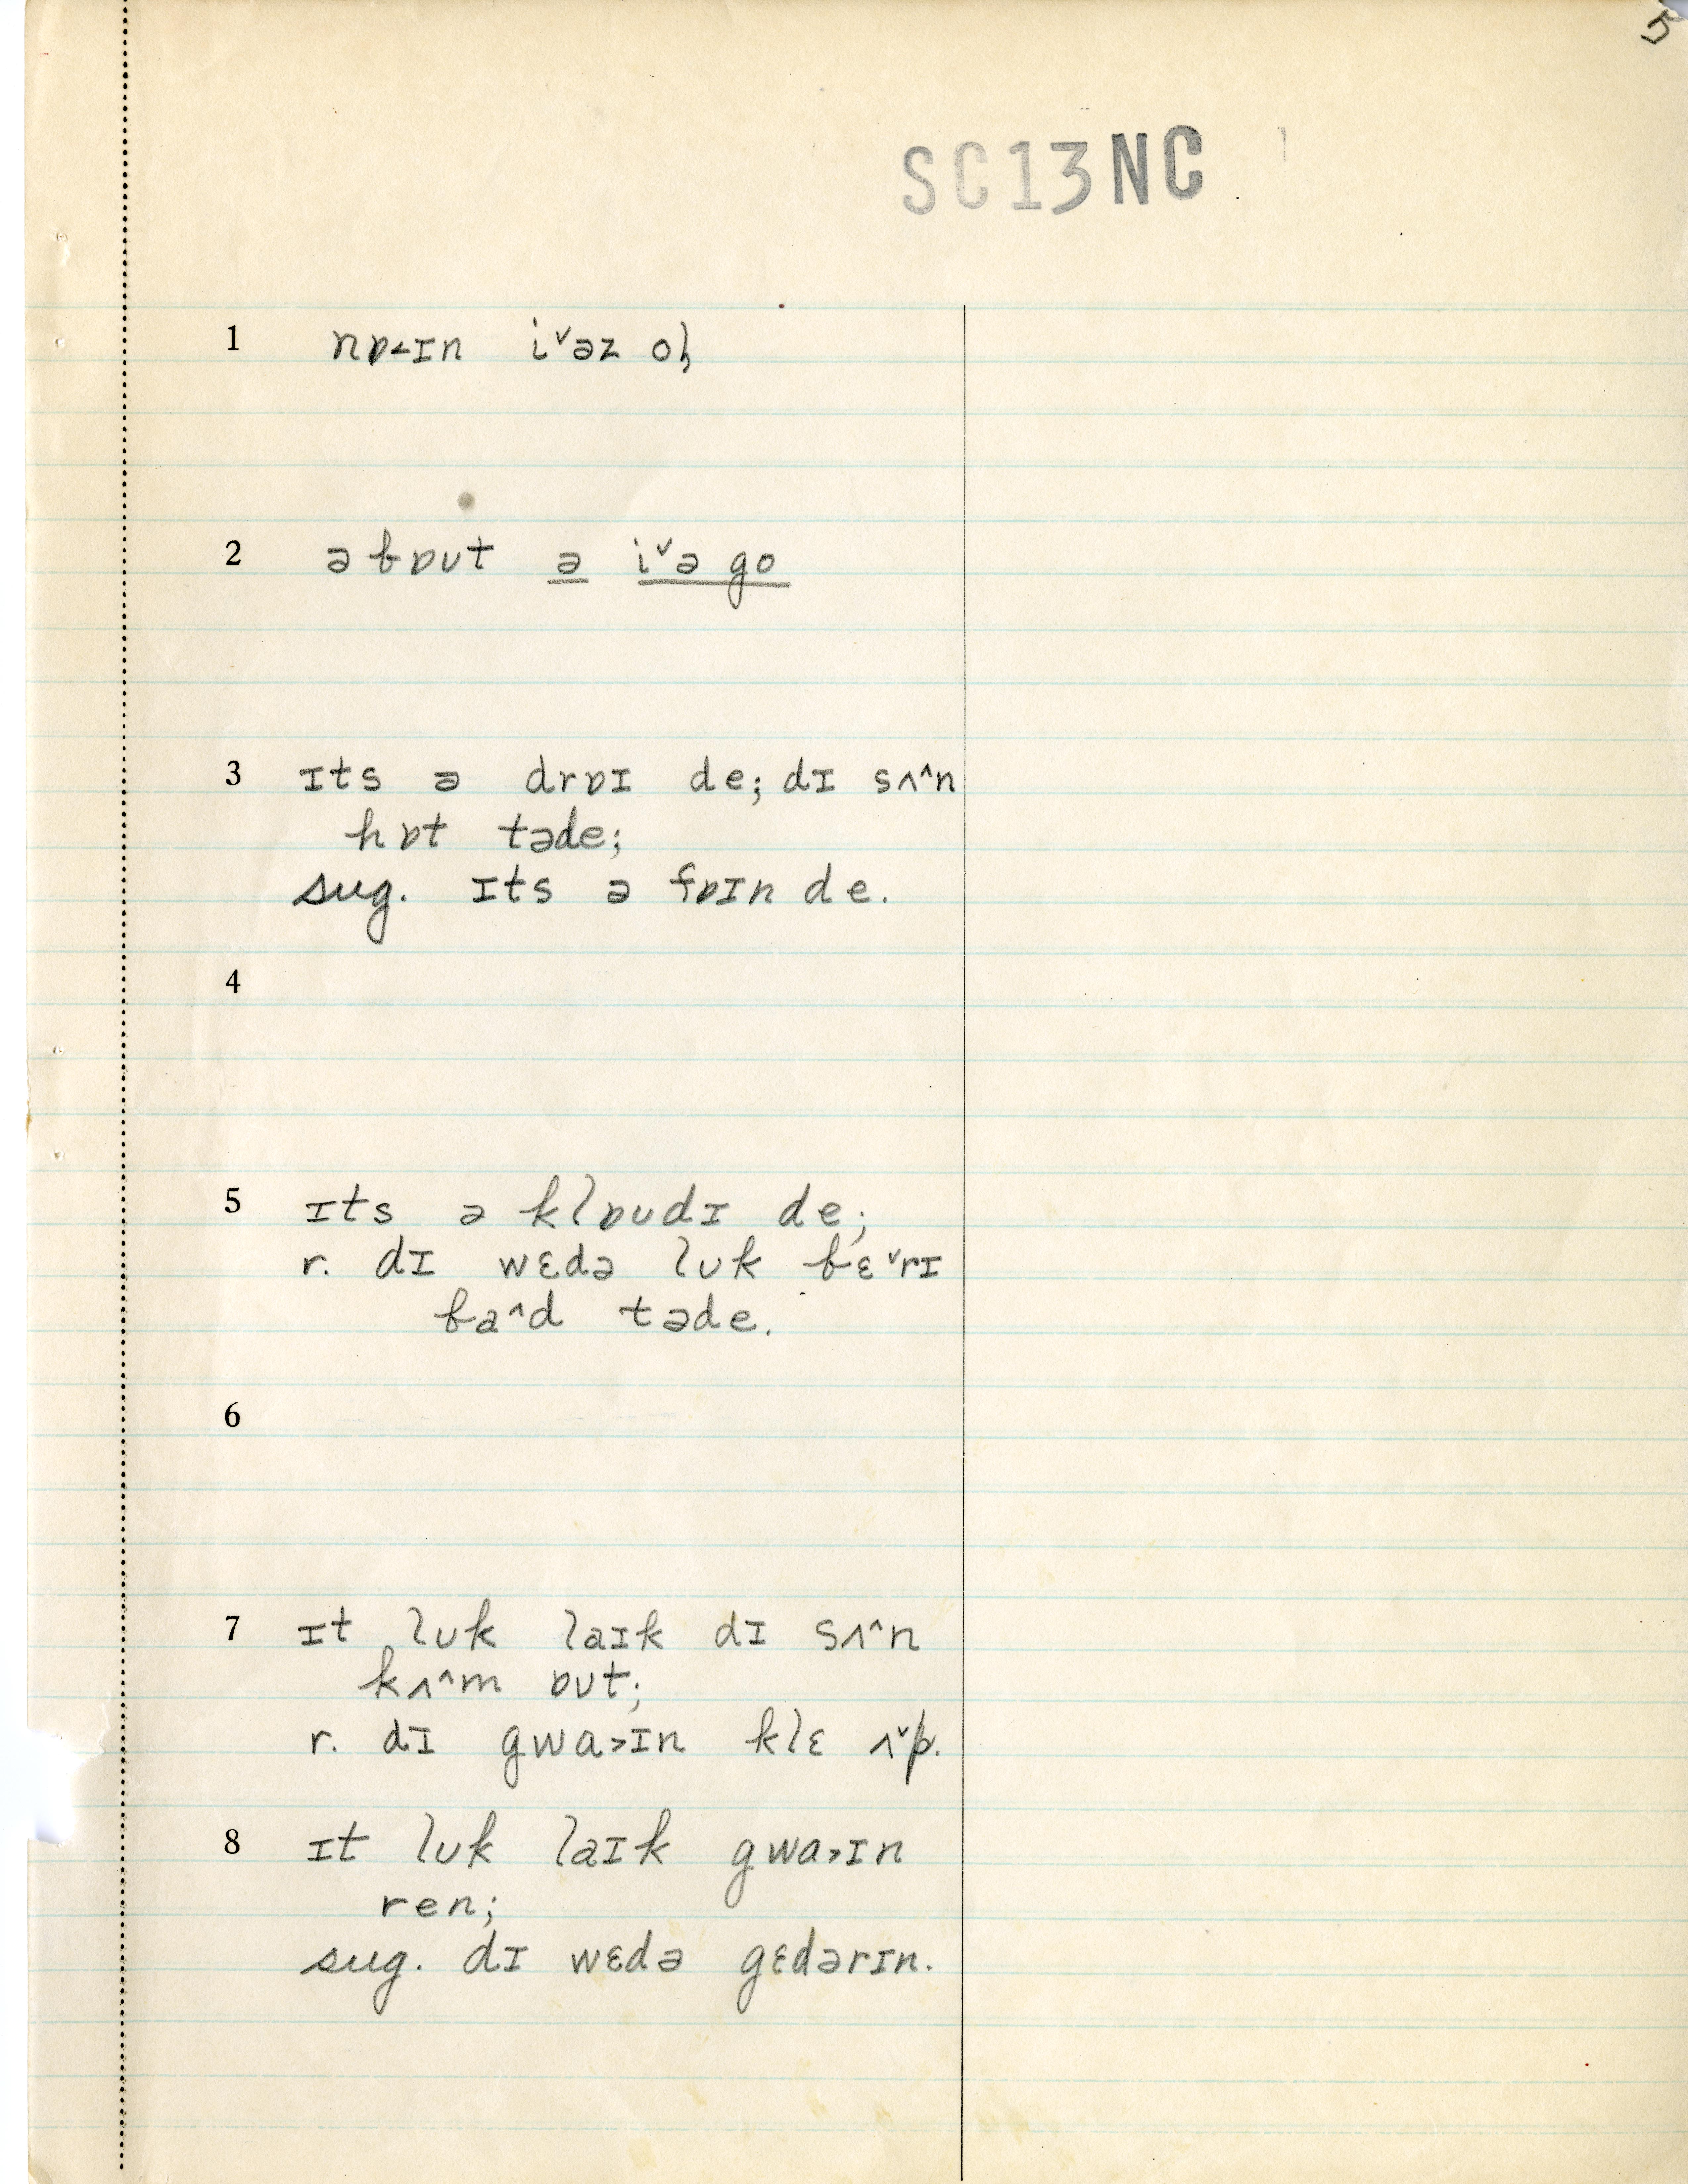 5
SC13NC
1 nɒ˂ɪn i˅əz ol
2 əbɒʊt ə i˅ə go
3 ɪts ə drɒɪ de; dɪ sʌ^n
hɒt təde;
sug. ɪts ə fɒɪn de.
4
5 ɪts ə klɒʊdɪ de;
r. dɪ wɛdə lʊk bɛ˅rɪ
ba^d təde.
6
7 ɪt lʊk laɪk dɪ sʌ^n
kʌ^m ɒʊt;
r. dɪ gwɑ˃ɪn klɛ ʌ˅p.
8 ɪt lʊk laɪk gwɑ˃ɪn
ren;
sug. dɪ wɛdə gɛdərɪn.